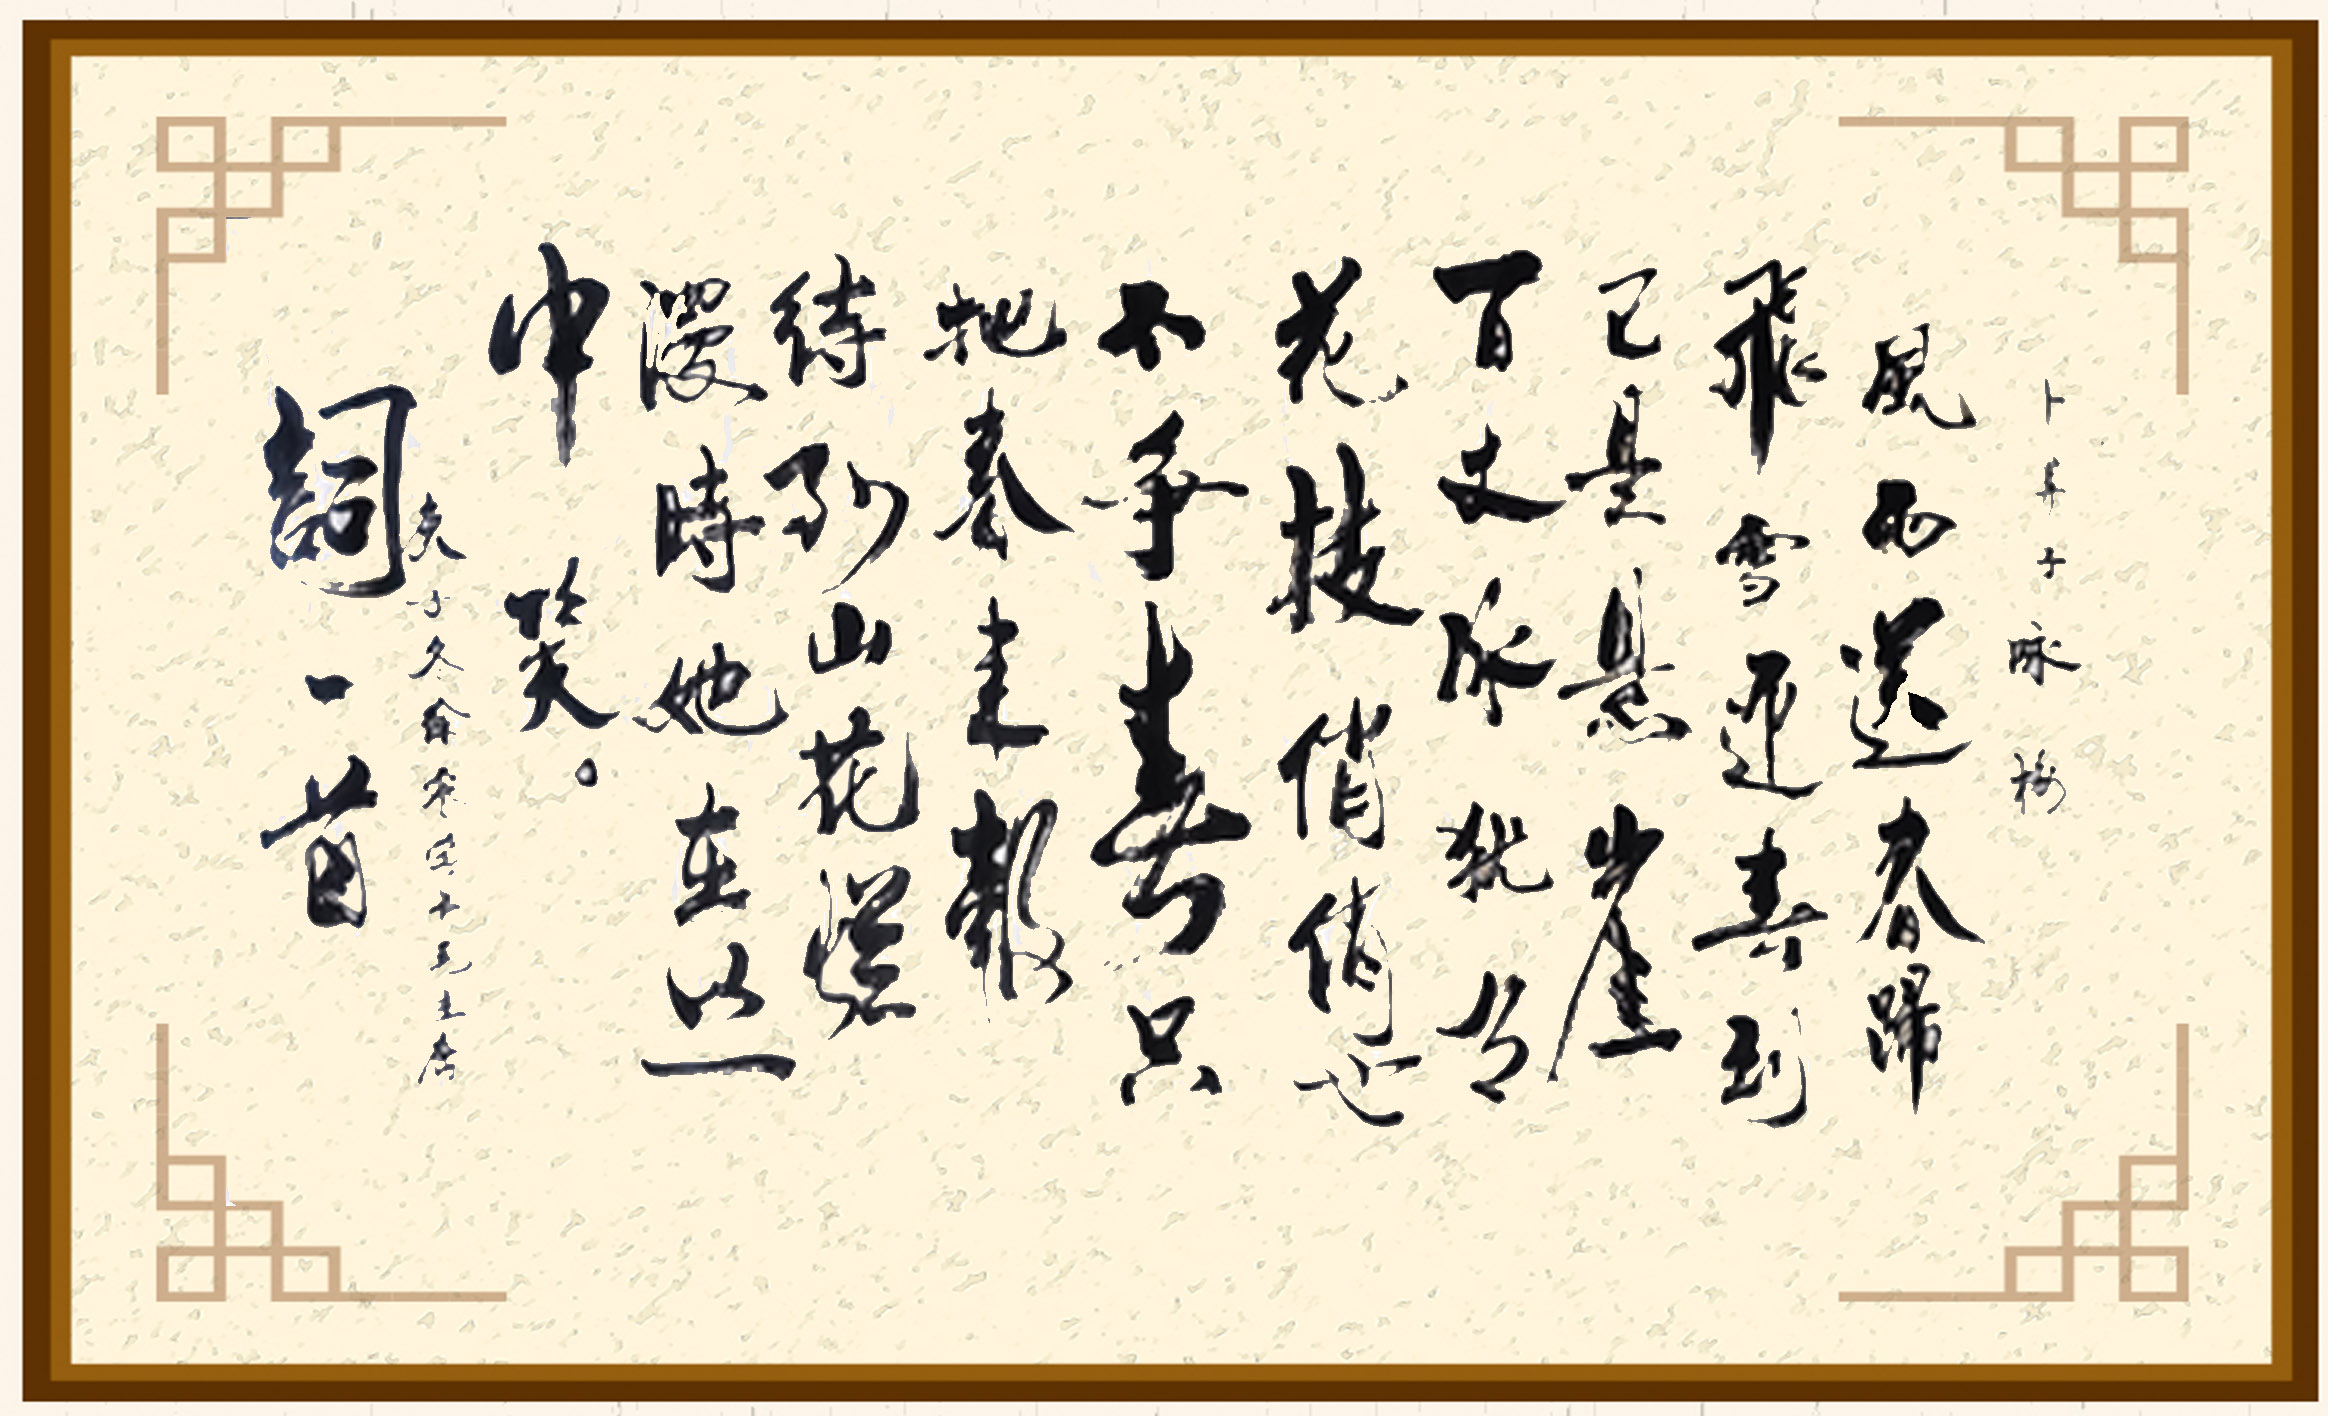 卜算子 咏梅
風雨送春歸
飛雪迎春到
已是悬崖
百丈冰犹有
花枝俏俏也
不争春只
把春来報
待到山花爛
漫時她在丛
中笑。
詞一首